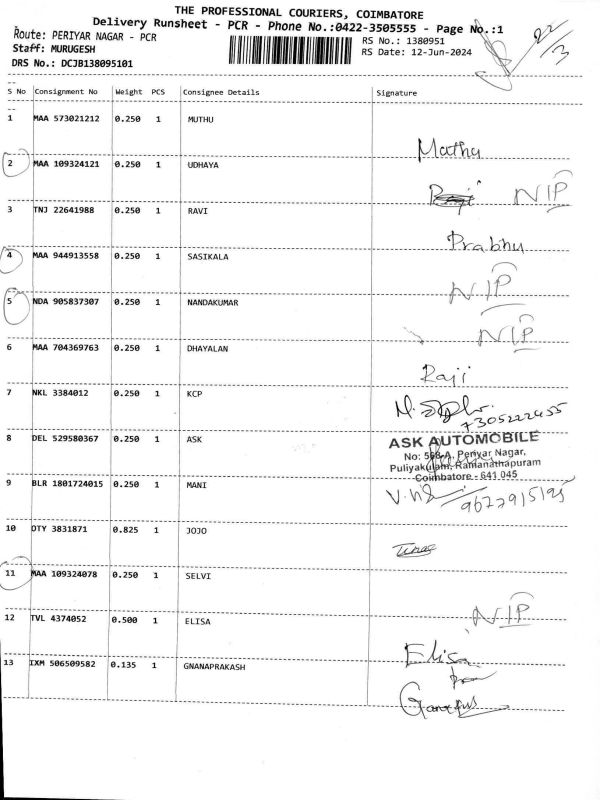 THE PROFESSIONAL COURIERS, COIMBATORE
Delivery Runsheet - PCR - Phone No.:0422-3505555 - Page No.:1
Route: PERIYAR NAGAR - PCR
RS No.: 1380951
Staff: MURUGESH
RS Date: 12-Jun-2024
DRS No.: DCJB138095101
22/3
S No Consignment No Weight PCS Consignee Details Signature
1 MAA 573021212 0.250 1 MUTHU
Muthu
2 MAA 109324121 0.250 1 UDHAYA
NIP
3 TNJ 22641988 0.250 1 RAVI
Prabhu
4 MAA 944913558 0.250 1 SASIKALA
NIP
5 NDA 905837307 0.250 1 NANDAKUMAR
NIP
6 MAA 704369763 0.250 1 DHAYALAN
Raji
7 NKL 3384012 0.250 1 KCP
7305222455
8 DEL 529580367 0.250 1 ASK
ASK AUTOMOBILE
No: 568-A, Periyar Nagar,
Puliyakulam, Ramanathapuram
Coimbatore - 641 045
9 BLR 1801724015 0.250 1 MANI
9677915195
10 OTY 3831871 0.825 1 JOJO
11 MAA 109324078 0.250 1 SELVI
NIP
12 TVL 4374052 0.500 1 ELISA
Elisa
13 IXM 506509582 0.135 1 GNANAPRAKASH